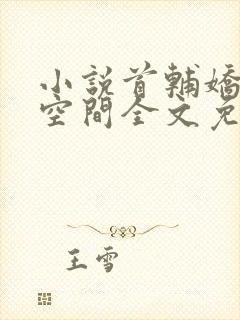 小說首輔嬌
空間全文免
王雪